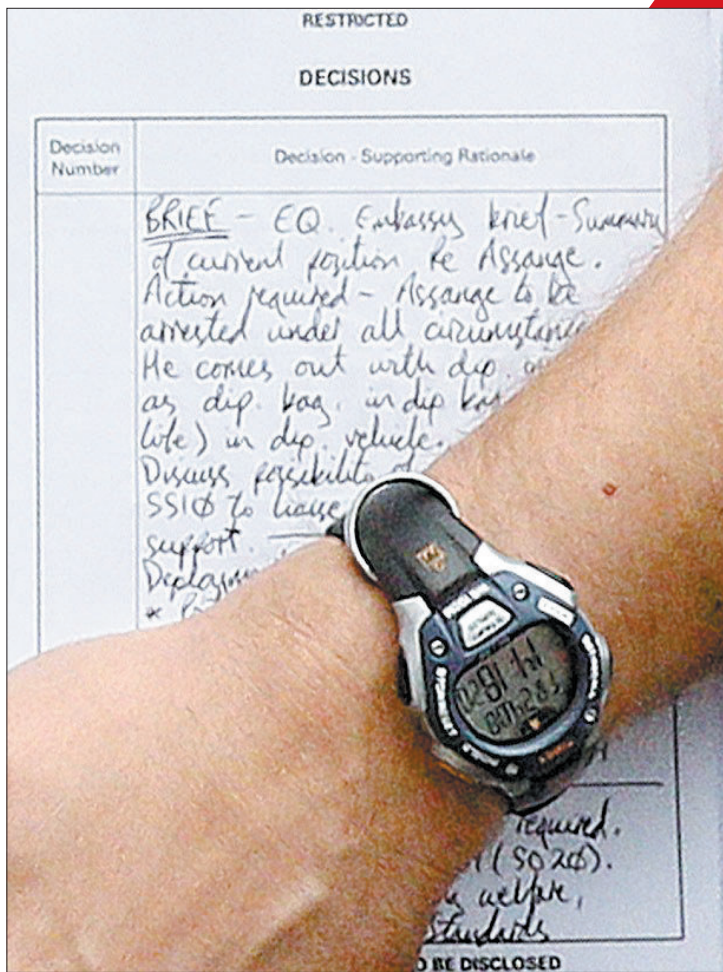 RESTRICTED
DECISIONS
Decision Number
Decision - Supporting Rationale
BRIEF - EQ. Embassy brief - Summary
of current position Re Assange.
Action required - Assange to be
arrested under all circumstances
He comes out with dip.
as dip. bag, in dip
in dip. vehicle.
Discuss possibility
SS10 to liaise
support.
required.
(SO20).
welfare,
Standards
O BE DISCLOSED